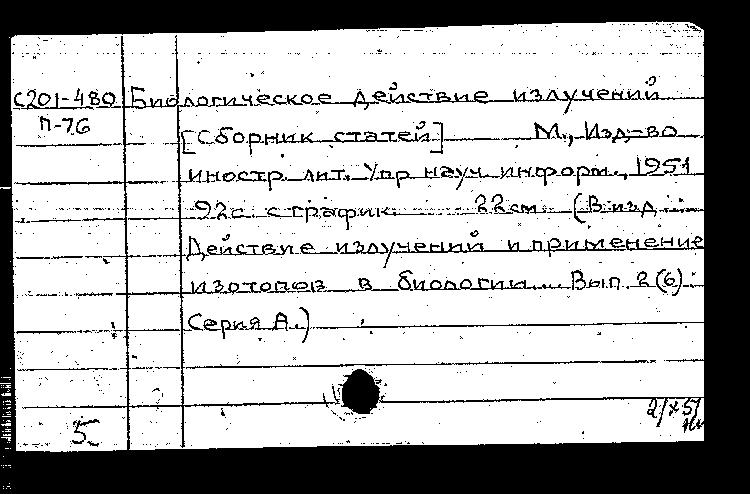 С201-480 Биологическое действие излучений
П-76
[Сборник статей] М., Изд-во
иностр. лит. Упр науч. информ., 1951
92с. с график. 22см. (В изд.:
Действие излучений и применение
изотопов в биологии... Вып. 2(6).
Серия А.)
2/X 51
5